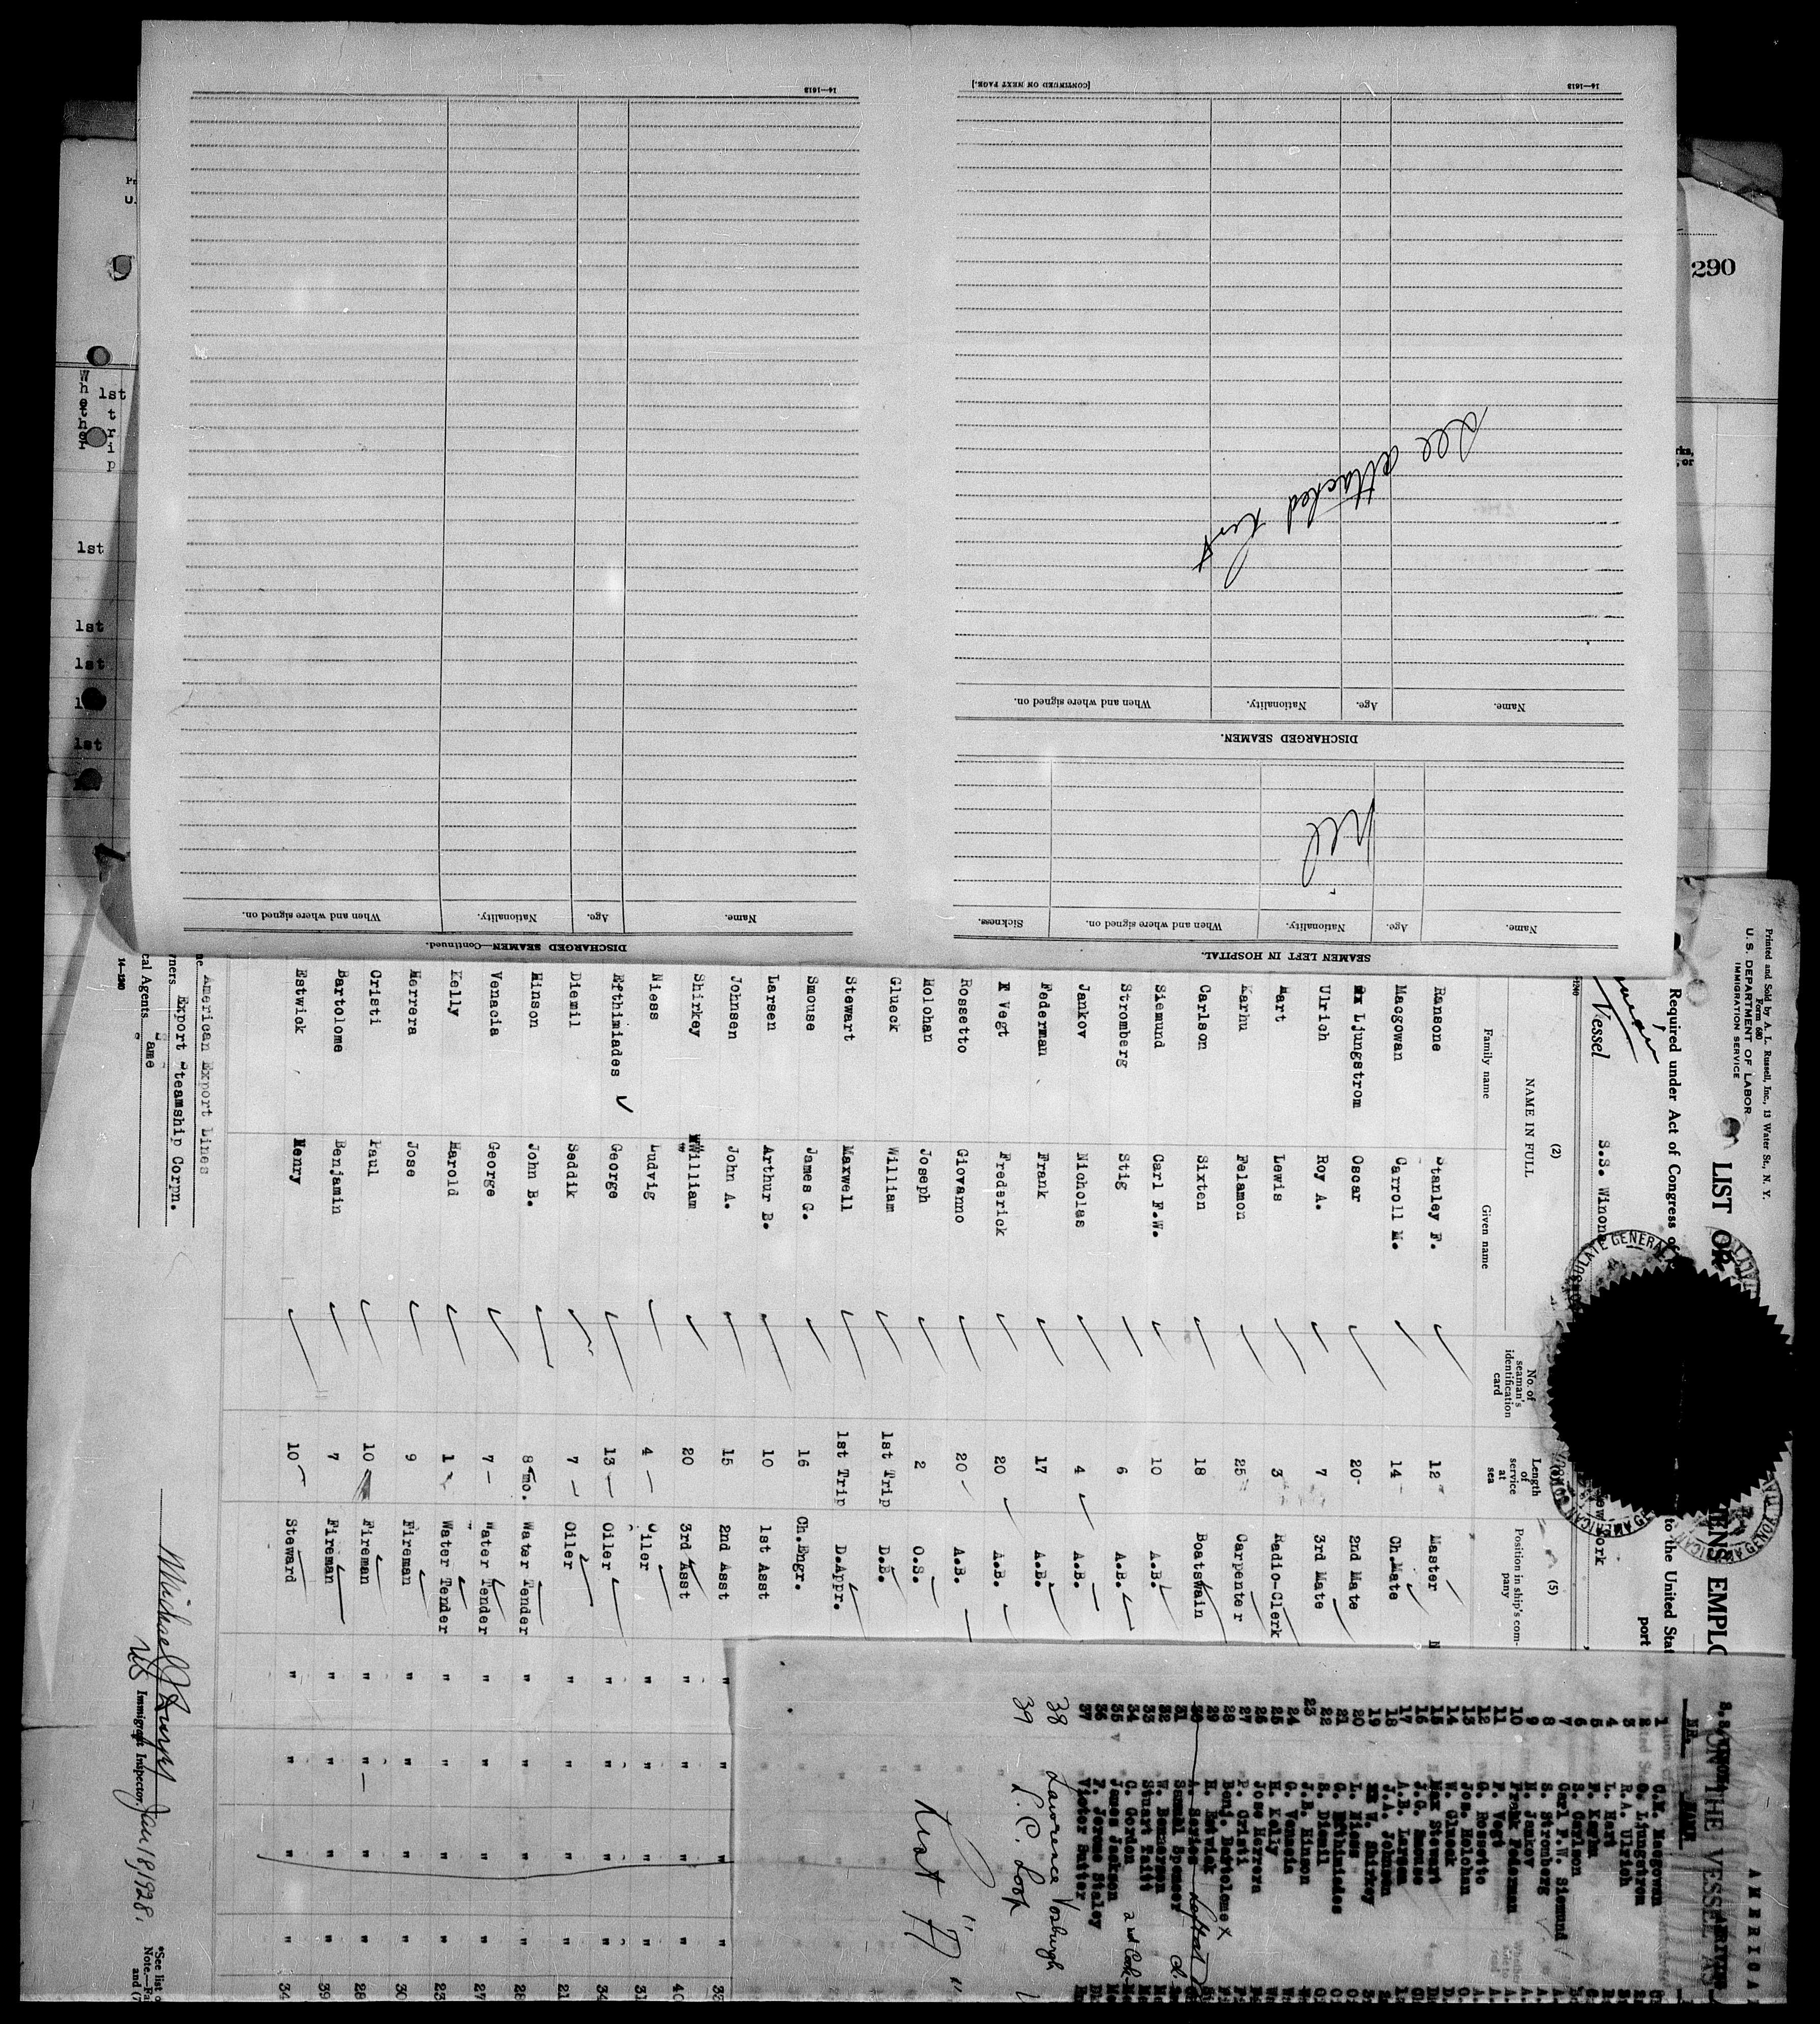 290
14—1613
[CONTINUED ON NEXT PAGE.]
14—1613
See attached list
Name. Age. Nationality. When and where signed on.
DISCHARGED SEAMEN.
nil
Name. Age. Nationality. When and where signed on. Sickness.
SEAMEN LEFT IN HOSPITAL.
Name. Age. Nationality. When and where signed on.
DISCHARGED SEAMEN—Continued.
Whether
1st trip
1st
1st
1st
1st
Printed and Sold by A. L. Russell, Inc., 13 Water St., N. Y.
Form 680
U. S. DEPARTMENT OF LABOR
IMMIGRATION SERVICE
LIST OR
ENS EMPLO
Required under Act of Congress of
to the United Stat
port
Vessel S.S. Winona
ew York
(2) (5)
NAME IN FULL
Family name Given name No. of seaman's identification card Length of service at sea Position in ship's company
Ransone Stanley F. 12 Master
Macgowan Carroll M. 14 Ch.Mate
Ljungstrom Oscar 20 2nd Mate
Ulrich Roy A. 7 3rd Mate
Hart Lewis 3 Radio-Clerk
Karhu Felamon 25 Carpenter
Carlson Sixten 18 Boatswain
Siemund Carl F.W. 10 A.B.
Stromberg Stig 6 A.B.
Jankov Nicholas 4 A.B.
Federman Frank 17 A.B.
Vegt Frederick 20 A.B.
Rossetto Giovanno 20 A.B.
Holohan Joseph 2 O.S.
Glueck William 1st Trip D.B.
Stewart Maxwell 1st Trip D.Appr.
Smouse James G. 16 Ch.Engr.
Larsen Arthur B. 10 1st Asst
Johnsen John A. 15 2nd Asst " " " " 33
Shirkey William 20 3rd Asst " " " " 40
Niess Ludvig 4 Oiler " " " " 31
Efthimiades George 13 Oiler " " " " 34
Diemil Seddik 7 Oiler " " " " 21
Hinson John B. 8 mo. Water Tender " " " " 28
Venacia George 7 Water Tender " " " " 27
Kelly Harold 1 Water Tender " " " " 23
Herrera Jose 9 Fireman " " " " 30
Cristi Paul 10 Fireman " " " "
Bartolome Benjamin 7 Fireman " " " " 39
Estwick Henry 10 Steward " " " " 34
American Export Lines
Export Steamship Corpn.
cal Agents ame
14—1240
US Immigrant Inspector. Jan 18, 1928.
*See list o
Note.—Fa
and (7
AMERICA
ON THE VESSEL AS
NR. NAME
1 C.M. Macgowan
2 O. Ljungstrom
3 R.A. Ulrich
4 L. Hart
5 F. Karhu
6 S. Carlson
7 Carl F.W. Siemund
8 S. Stromberg
9 N. Jankov
10 Frank Federman
11 F. Vegt
12 G. Rossetto
13 Jos. Holohan
14 W. Glueck
15 Max Stewart
16 J.G. Smouse
17 A.B. Larsen
18 J.A. Johnsen
19 W. Shirkey
20 L. Niess
21 G. Efthimiades
22 S. Diemil
23 J.B. Hinson
24 G. Venacia
25 H. Kelly
26 Jose Herrera
27 P. Cristi
28 Benj. Bartolome X
29 H. Estwick
30 A. Series
31 Samual Spencer
32 W. Bennerson
33 Stuart Taitt
34 C. Gordon 2nd Cook
35 James Jackson
36 F. Jerome Staley
37 Victor Sutter
38 Lawrence Vosburgh
39 P. C. Loop
List "A"